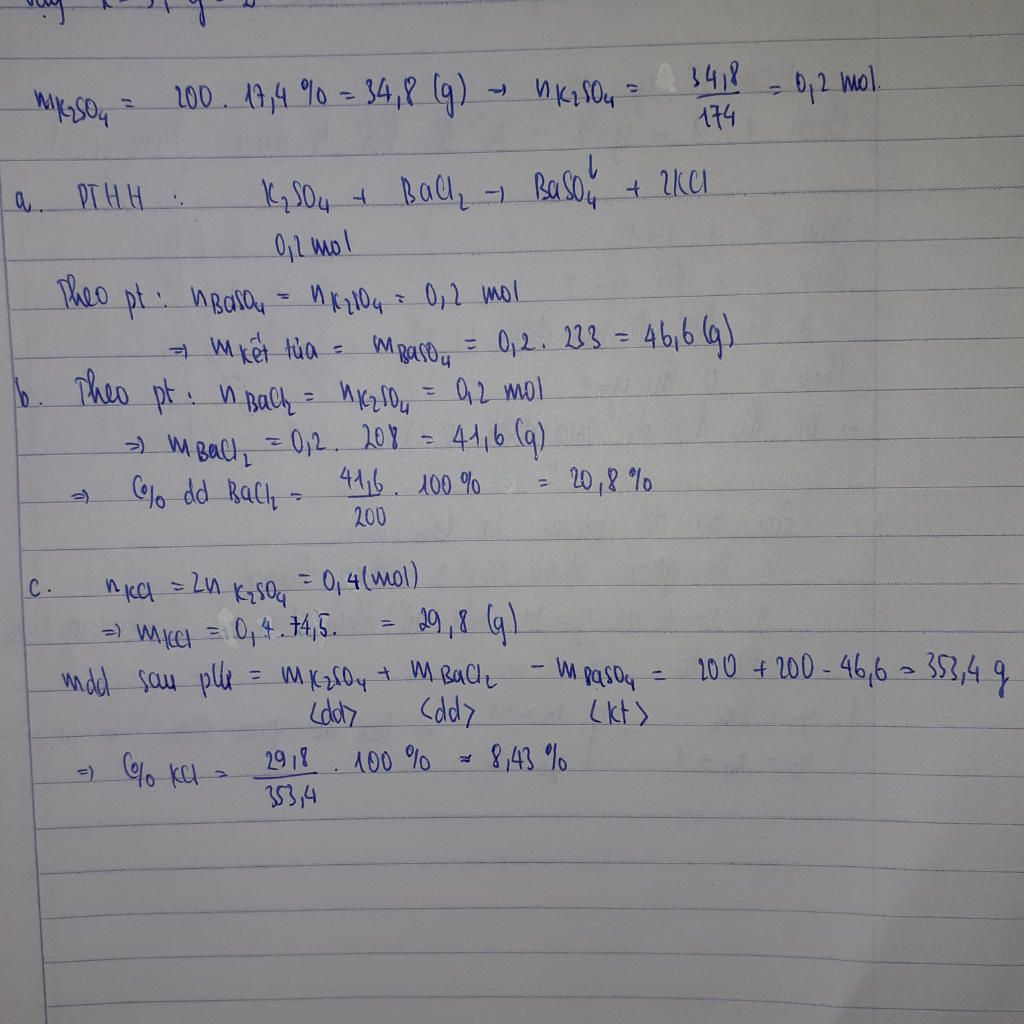 mK₂SO₄ = 200 . 17,4 % = 34,8 (g) → nK₂SO₄ = 34,8/174 = 0,2 mol.
a. PTHH : K₂SO₄ + BaCl₂ → BaSO₄↓ + 2KCl
0,2 mol
Theo pt : nBaSO₄ = nK₂SO₄ = 0,2 mol
⇒ m kết tủa = mBaSO₄ = 0,2 . 233 = 46,6 (g)
b. Theo pt : nBaCl₂ = nK₂SO₄ = 0,2 mol
⇒ mBaCl₂ = 0,2 . 208 = 41,6 (g)
⇒ C% dd BaCl₂ = 41,6/200 . 100 % = 20,8 %
c. nKCl = 2nK₂SO₄ = 0,4 (mol)
⇒ mKCl = 0,4 . 74,5. = 29,8 (g)
mdd sau pư = mK₂SO₄ + mBaCl₂ - mBaSO₄ = 200 + 200 - 46,6 = 353,4 g
<dd> <dd> <kt>
⇒ C% KCl = 29,8/353,4 . 100 % ≈ 8,43 %